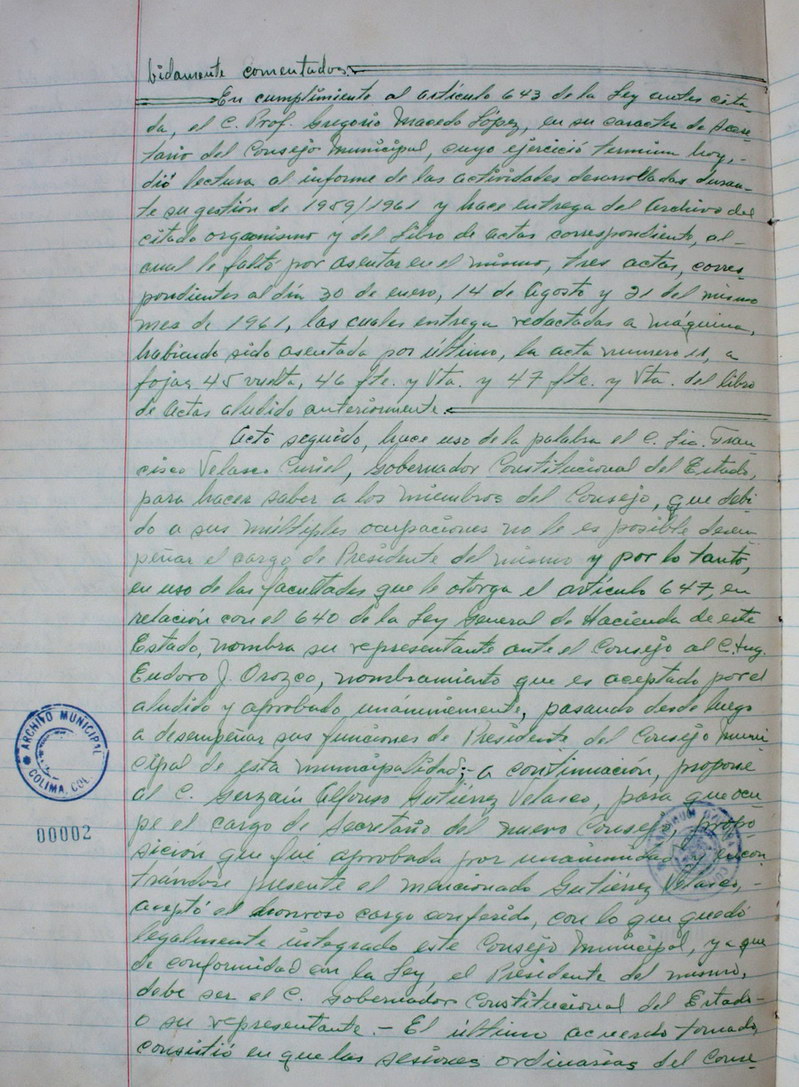 bidamente comentados.
En cumplimiento al artículo 643 de la Ley antes cita-
da, el C. Prof. Gregorio Macedo López, en su caracter de Secre-
tario del Consejo Municipal, cuyo ejercició termina hoy,-
dió lectura al informe de las actividades desarrolladas duran-
te su gestión de 1959/1961 y hace entrega del Archivo del
citado organismo y del Libro de actas correspondiente, al-
cual le faltó por asentar en el mismo, tres actas, corres-
pondientes al día 30 de enero, 14 de Agosto y 21 del mismo
mes de 1961, las cuales entrega redactadas a máquina,
habiendo sido asentada por último, la acta numero 11, a
fojas 45 vuelta, 46 fte. y Vta. y 47 fte. y Vta. del libro
de actas aludido anteriormente.
Acto seguido, hace uso de la palabra el C. Lic. Fran-
cisco Velasco Curiel, Gobernador Constitucional del Estado,
para hacer saber a los miembros del Consejo, que debi-
do a sus múltiples ocupaciones no le es posible desem-
peñar el cargo de Presidente del mismo y por lo tanto,
en uso de las facultades que le otorga el artículo 647, en
relación con el 640 de la Ley General de Hacienda de este
Estado, nombra su representante ante el Consejo al C. Ing.
Eudoro J. Orozco, nombramiento que es aceptado por el
aludido y aprobado unánimemente, pasando desde luego
a desempeñar sus funciones de Presidente del Consejo Muni-
cipal de esta municipalidad;- a continuación, propone
al C. Gerzaín Alfonso Gutiérrez Velasco, para que ocu-
pe el cargo de Secretario del nuevo Consejo, propo-
sición que fué aprobada por unanimidad y encon-
trándose presente el mencionado Gutiérrez Velasco,-
aceptó el honroso cargo conferido, con lo que quedó
legalmente integrado este Consejo Municipal, ya que
de conformidad con la Ley, el Presidente del mismo,
debe ser el C. Gobernador Constitucional del Estado-
o su representante.- El último acuerdo tomado,
consistió en que las sesiones ordinarias del Conse-
ARCHIVO MUNICIPAL
COLIMA, COL.
00002